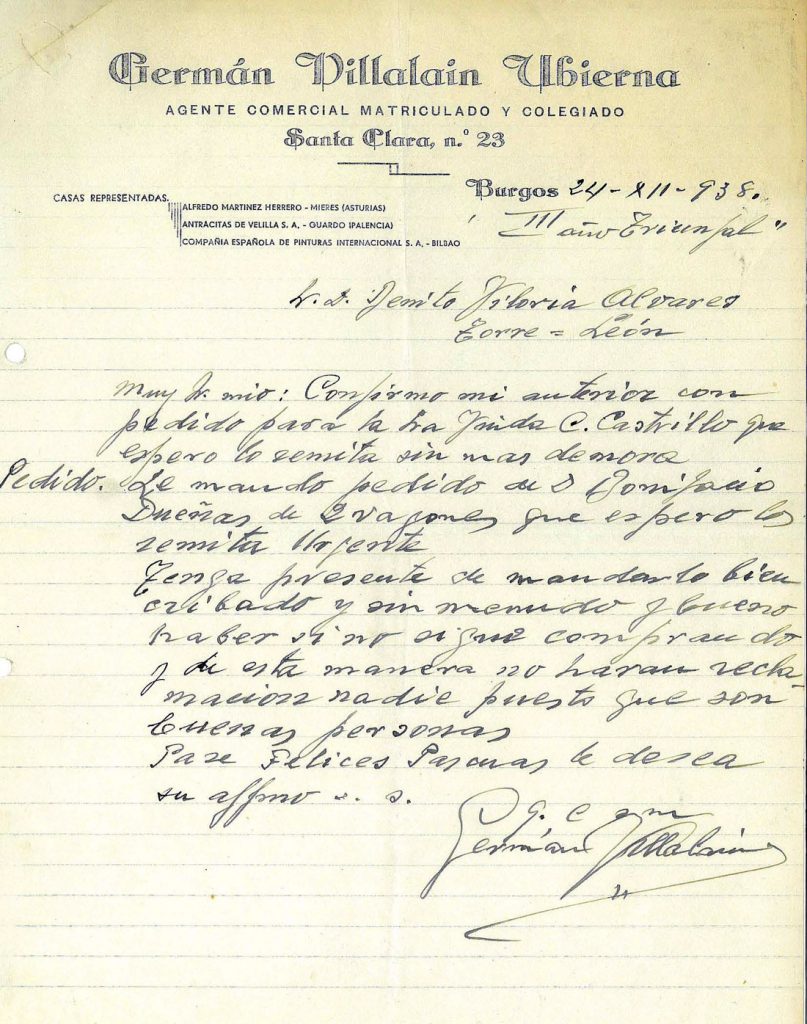 Germán Villalain Ubierna
AGENTE COMERCIAL MATRICULADO Y COLEGIADO
Santa Clara, n.º 23
CASAS REPRESENTADAS.
ALFREDO MARTINEZ HERRERO - MIERES (ASTURIAS)
ANTRACITAS DE VELILLA S. A. - GUARDO (PALENCIA)
COMPAÑIA ESPAÑOLA DE PINTURAS INTERNACIONAL S. A. - BILBAO
Burgos 24-XII-938.
"III año Triunfal"
Sr. D. Benito Viloria Alvarez
Torre = León
Muy Sr. mio: Confirmo mi anterior con
pedido para la Sra Viuda C. Castrillo que
espero lo remita sin mas demora
Pedido. Le mando pedido de D Bonifacio
Dueñas de 2 vagones que espero los
remita Urgente
Tenga presente de mandarlo bien
cribado y sin menudo y bueno
haber si no sigue comprando
y de esta manera no haran recla-
macion nadie puesto que son
buenas personas
Pase Felices Pascuas le desea
su affmo s. s.
q. e s m
Germán Villalain